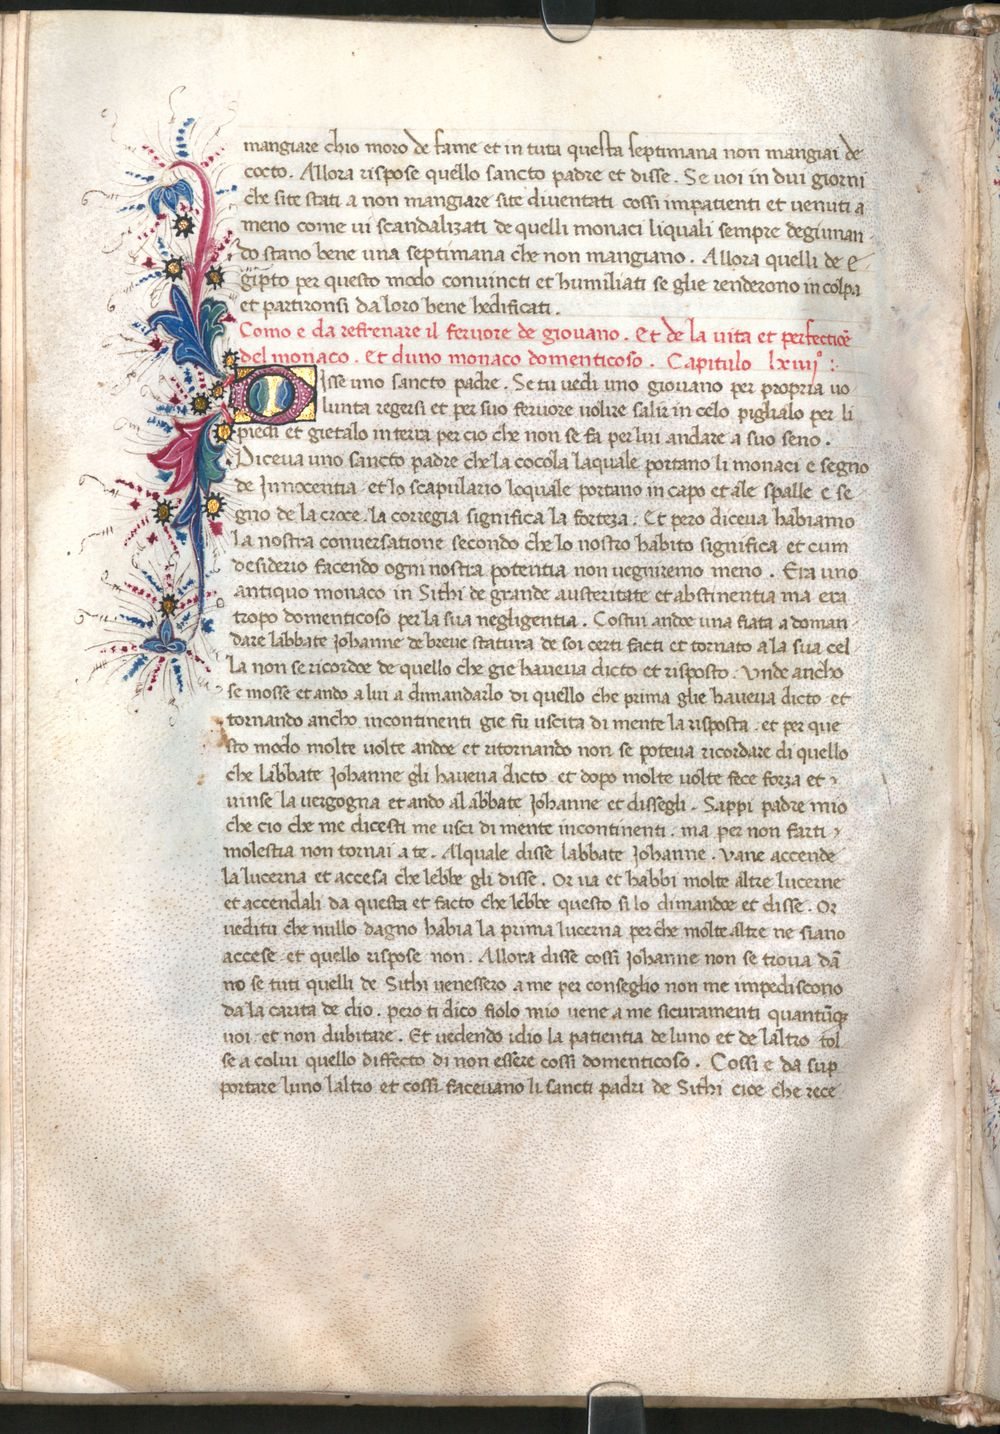 mangiare chio moro de fame et in tuta questa septimana non mangiai de
cocto. Allora rispose quello sancto padre et disse. Se voi in dui giorni
che site stati a non mangiare site diuentati cossi impatienti et uenuti a
meno come ui scandalizati de quelli monaci liquali sempre degiunan
do stano bene una septimana che non mangiano. Allora quelli de E
gipto per questo modo conuincti et humiliati se glie renderono in colpa
et partironsi da loro bene hedificati.
Como e da refrenare il feruore de giouano. Et de la uita et perfectioē
del monaco. Et duno monaco domenticoso. Capitulo lxiiij° :.
DIsse uno sancto padre. Se tu uedi uno giouano per propria uo
lunta regersi et per suo feruore uolire salir in celo piglialo per li
piedi et gietalo in terra per cio che non se fa per lui andare a suo seno.
Diceua uno sancto padre che la cocola laquale portano li monaci e segno
de Innocentia et lo scapulario loquale portano in capo et ale spalle e se
gno de la croce. la corregia significa la forteza. Et pero diceua habiamo
la nostra conuersatione secondo che lo nostro habito significa et cum
desiderio facendo ogni nostra potentia non uegniremo meno. Era uno
antiquo monaco in Sithi de grande austeritate et abstinentia ma era
tropo domenticoso per la sua negligentia. Costui andoe una fiata a doman
dare labbate Johanne de breue statura de soi certi facti et tornato a la sua cel
la non se ricordoe de quello che gie haueua dicto et risposto. Unde ancho
se mosse et ando a lui a dimandarlo di quello che prima glie haueua dicto et
tornando ancho incontinenti gie fu uscita di mente la risposta. et per que
sto modo molte uolte andoe et ritornando non se poteua ricordare di quello
che labbate Johanne gli haueua dicto et dopo molte uolte fece forza et
uinse la uergogna et ando al abbate Johanne et dissegli. Sappi padre mio
che cio che me dicesti me usci di mente incontinenti. ma per non farti
molestia non tornai a te. Alquale disse labbate Johanne. Vane accende
la lucerna et accesa che lebbe gli disse. Or ua et habbi molte altre lucerne
et accendali da questa et facto che lebbe questo si lo dimandoe et disse. Or
ueditu che nullo dagno habia la prima lucerna perche molte altre ne siano
accese et quello rispose non. Allora disse cossi Johanne non se troua dā
no se tuti quelli de Sithi uenessero a me per conseglio non me impediscono
da la carita de dio. pero ti dico fiolo mio uene a me sicuramenti quantūqȝ
uoi et non dubitare. Et uedendo idio la patientia de luno et de laltro tol
se a colui quello diffecto di non essere cossi domenticoso. Cossi e da sup
portare luno laltro et cossi faceuano li sancti padri de Sithi cioe che rece